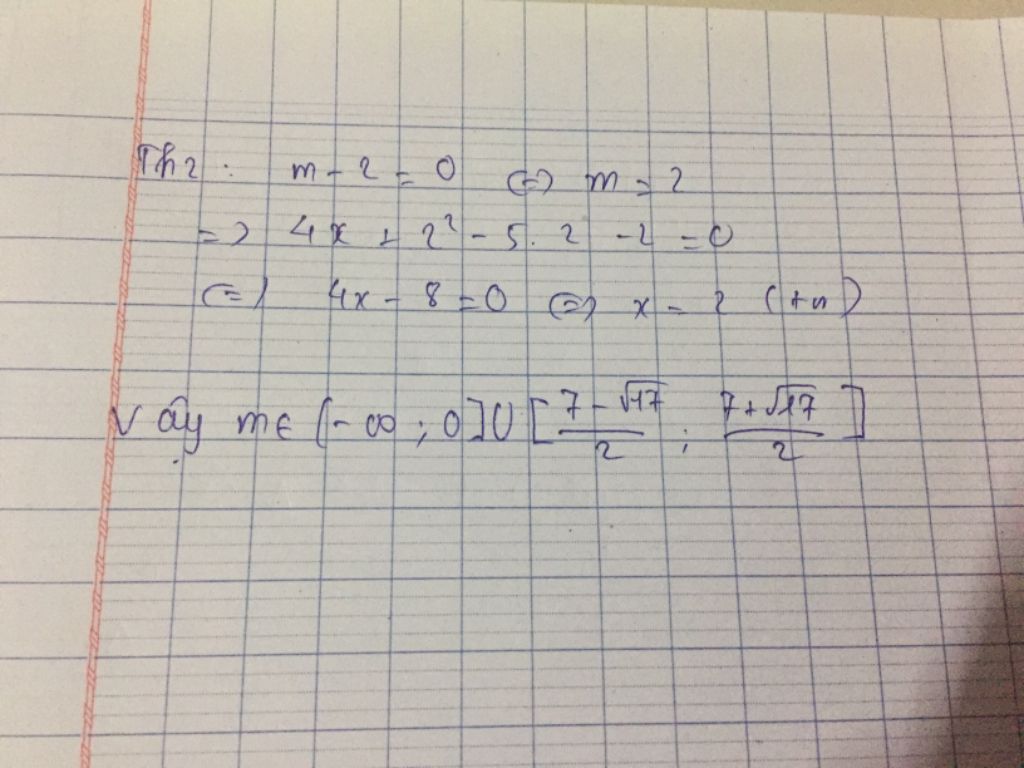 Th2: m - 2 = 0 <=> m = 2
=> 4x + 2² - 5.2 - 2 = 0
<=> 4x - 8 = 0 <=> x = 2 (tn)
Vậy m ∈ (-∞; 0] ∪ [7-√17/2 ; 7+√17/2]